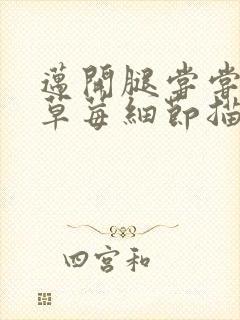 邁開腿嘗嘗
草莓細節描
四宮和